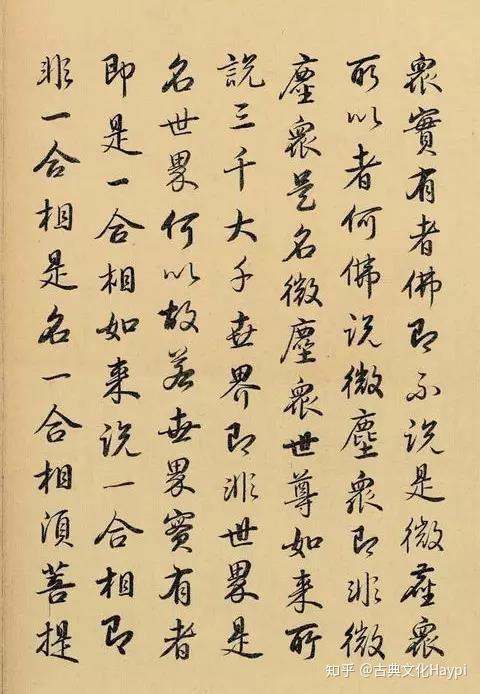 眾實有者佛即不说是微塵眾
所以者何佛说微塵眾即非微
塵眾是名微塵眾世尊如来所
說三千大千世界即非世界是
名世界何以故若世界實有者
即是一合相如来說一合相即
非一合相是名一合相須菩提
知乎 @古典文化Haypi